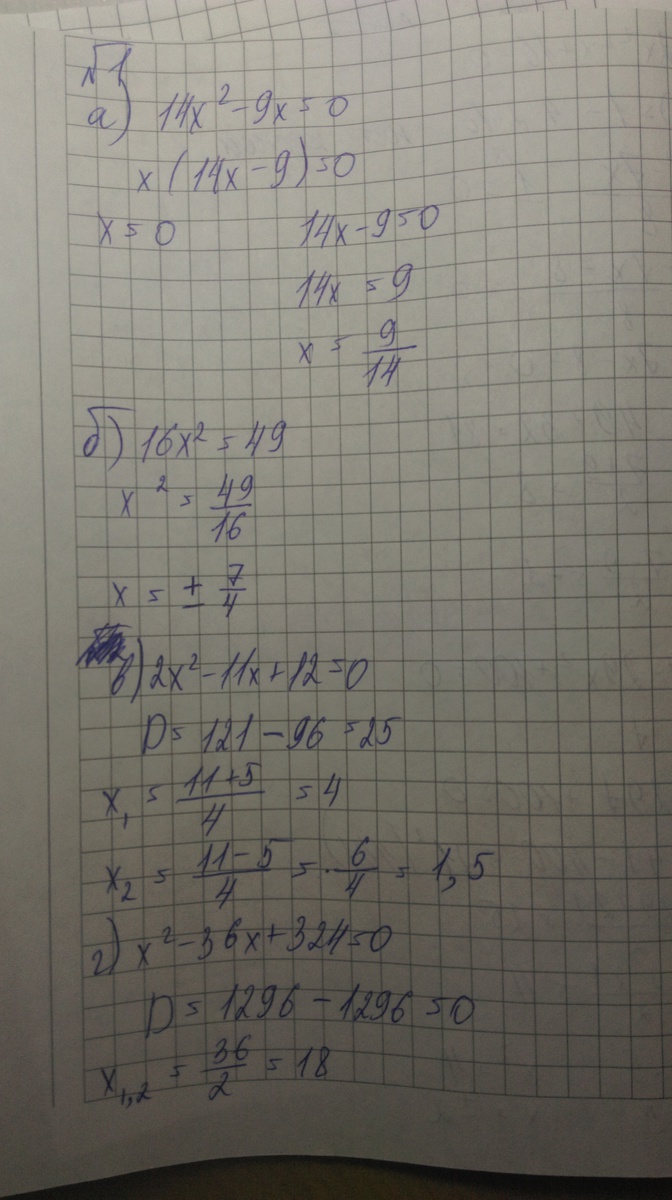 №1
а) 14x² - 9x = 0
x(14x - 9) = 0
x = 0 14x - 9 = 0
14x = 9
x = 9/14
б) 16x² = 49
x² = 49/16
x = ± 7/4
в) 2x² - 11x + 12 = 0
D = 121 - 96 = 25
x₁ = (11+5)/4 = 4
x₂ = (11-5)/4 = 6/4 = 1,5
г) x² - 36x + 324 = 0
D = 1296 - 1296 = 0
x₁,₂ = 36/2 = 18